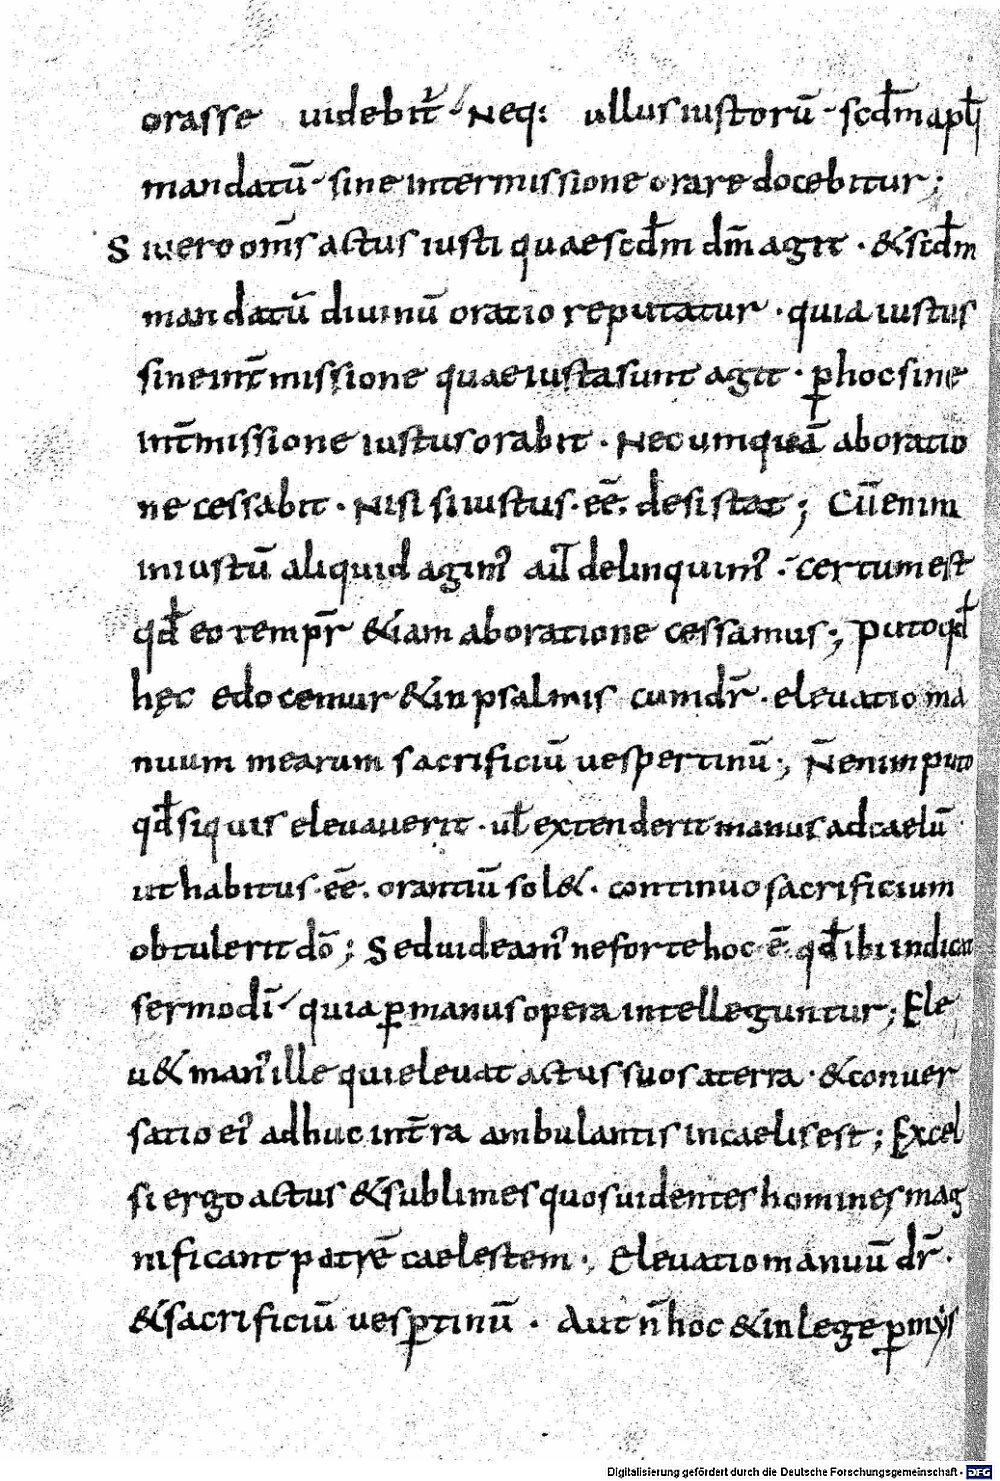 orasse uidebit᷑ Neq: ullus iustorū scdm̄ apłi
mandatū sine intermissione orare docebitur;
Si uero om̄s actus iusti quae scdm̄ dm̄ agit · & scdm̄
mandatū diuinū oratio reputatur · quia iustus
sine int̄missione quae iusta sunt agit · ꝑ hoc sine
int̄missione iustus orabit · Nec umquā ab oratio
ne cessabit · Nisi si iustus · eē. desistat; Cū enim
iniustū aliquid agim᾽ aut̄ delinquim᾽ · certum est
qđ eo tempr̄ &iam ab oratione cessamus; puto qđ
hęc edocemur & in psalmis cum dr̄ · eleuatio ma
nuum mearum sacrificiū uespertinū; N̄ enim puto
qđ si quis eleuauerit · uł extenderit manus ad caelū
ut habitus · eē. orantiū sol& · continuo sacrificium
obtulerit dō; Sed uideam᾽ ne forte hoc ē qđ ibi indicat
sermo dī quia ꝑ manus opera intelleguntur; Ele
u& man᾽ ille qui eleuat actus suos a terra · & conuer
satio ei᾽ adhuc int̄ra ambulantis in caelis est; Excel
si ergo actus & sublimes quos uidentes homines mag
nificant patrē caelestem; Eleuatio manuū dr̄ ·
& sacrificiū uesꝑtinū · Aut n̄ hoc & in lege ꝑ mys
Digitalisierung gefördert durch die Deutsche Forschungsgemeinschaft - DFG